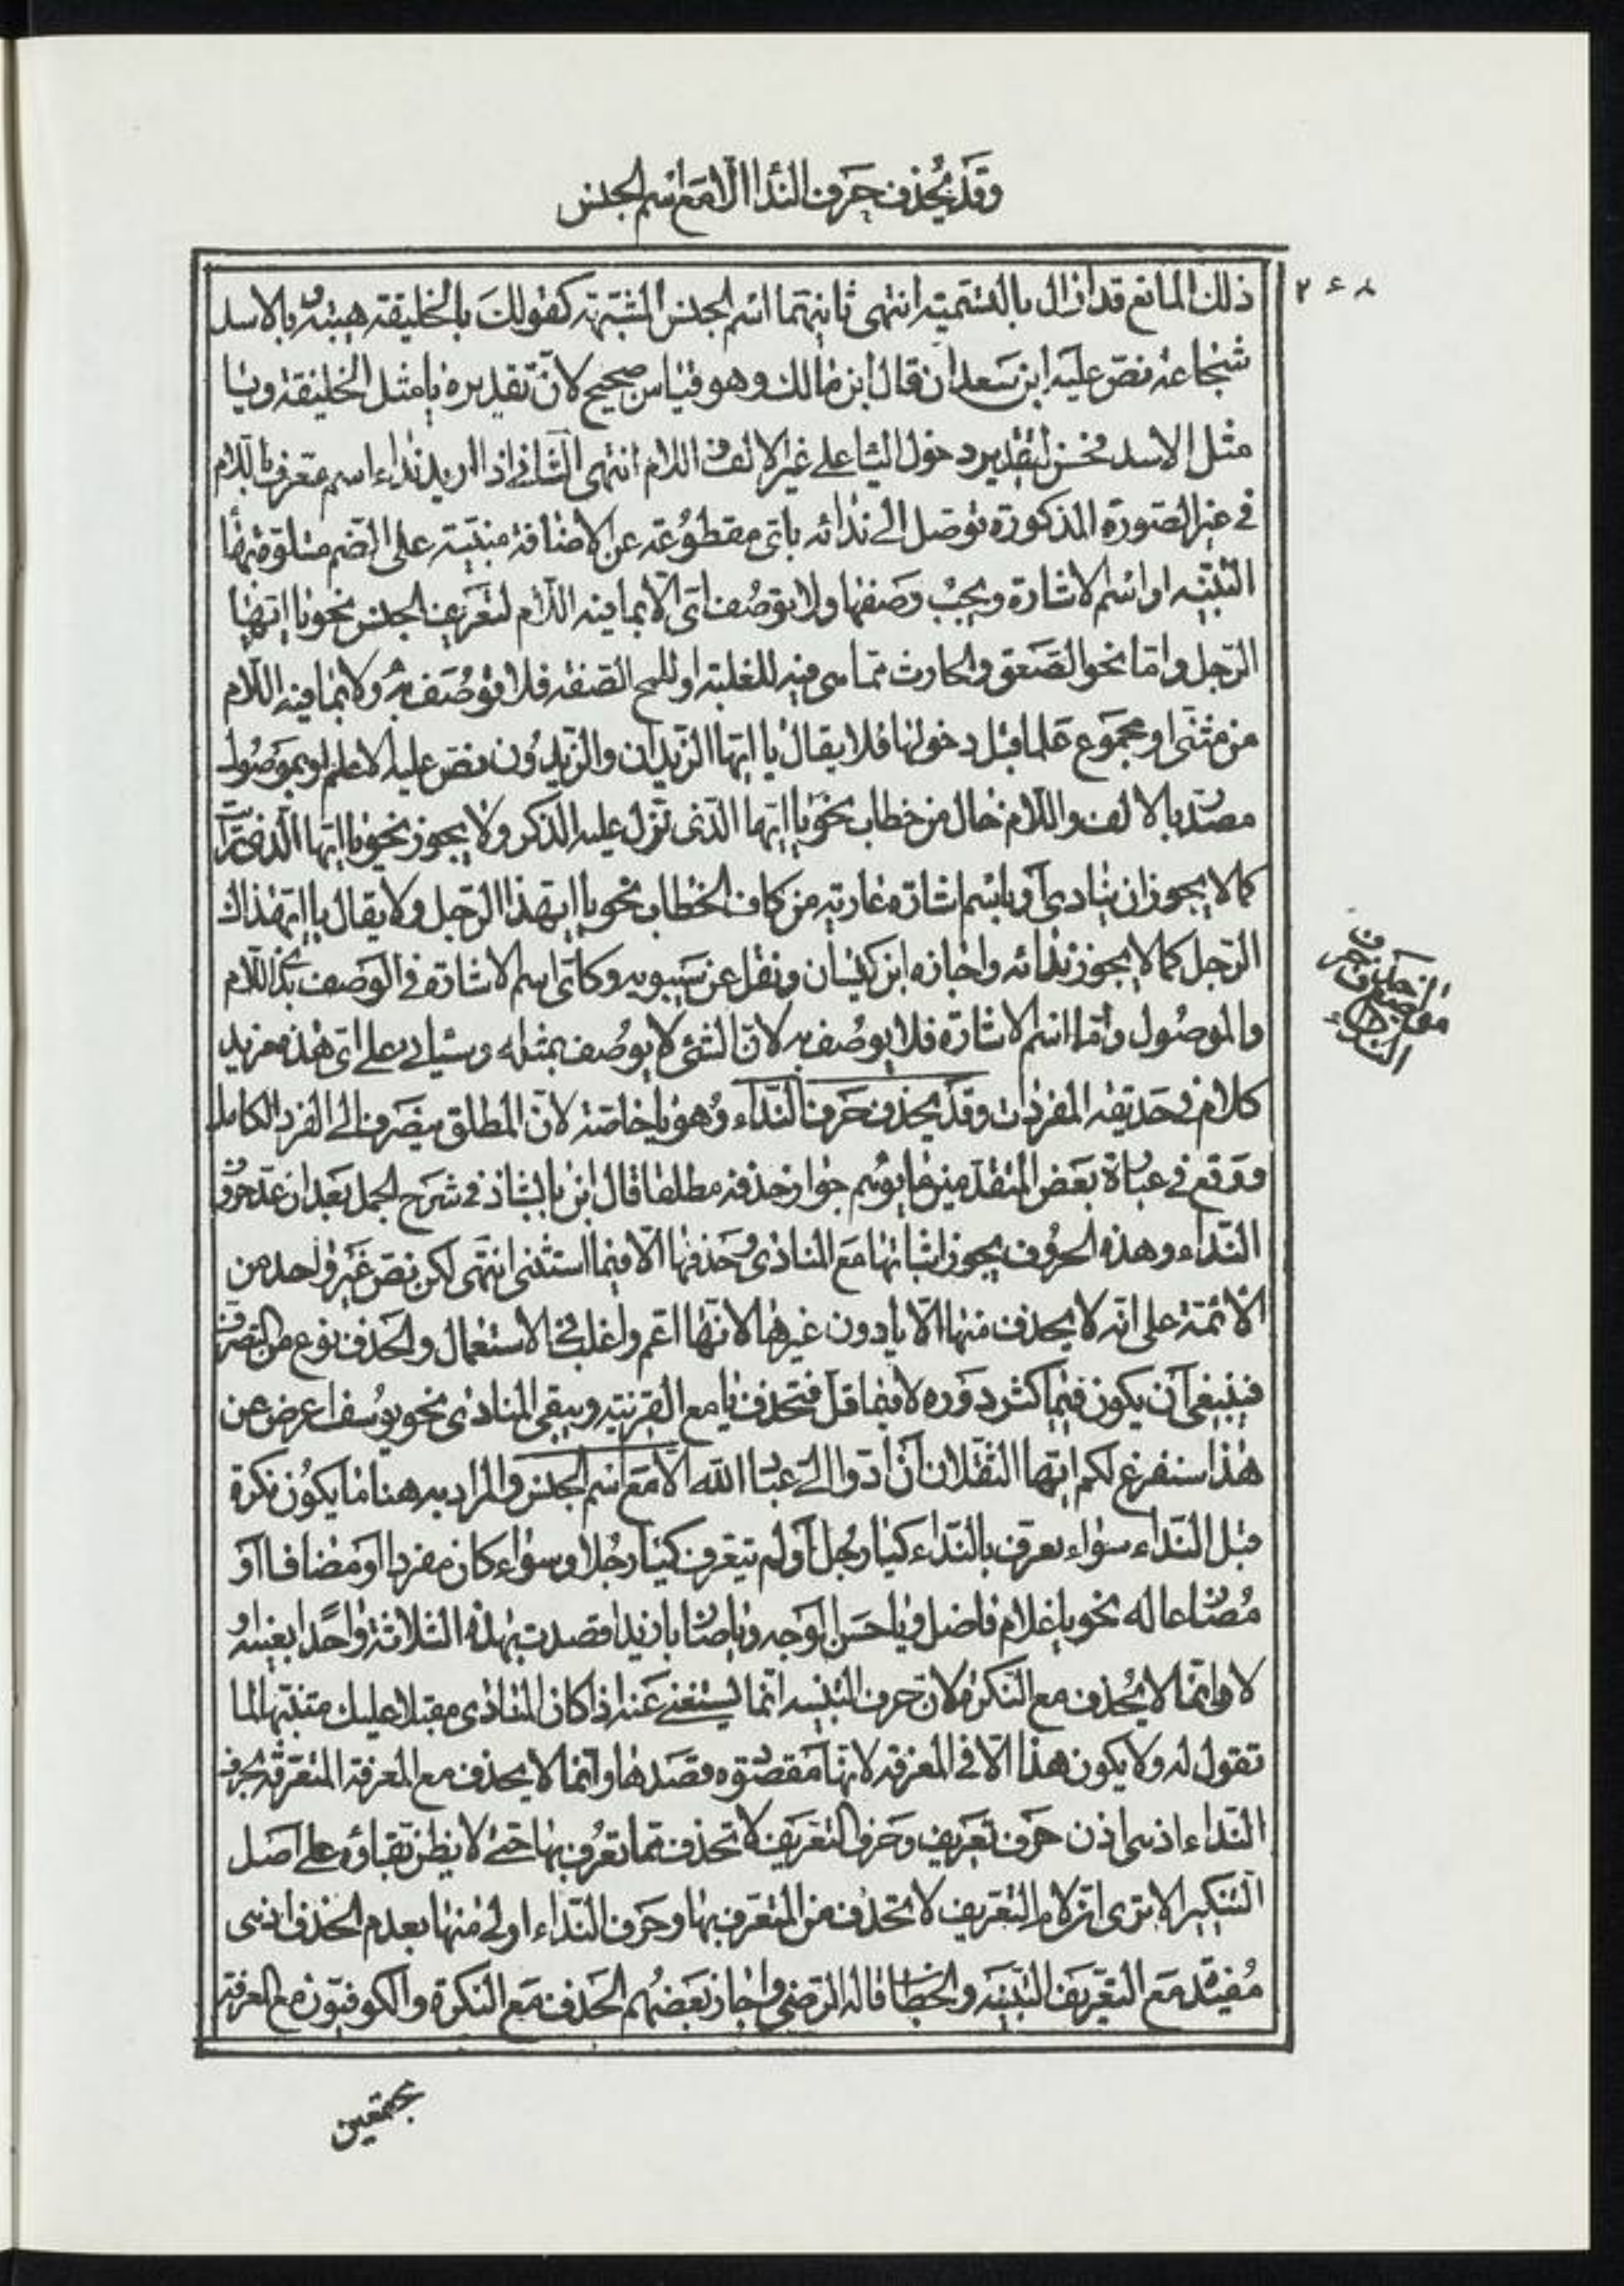 وقد يحذف حرف الندا الا مع اسم الجنس
ذلك المانع قد زال بالتسمية انتهى ثانيتهما اسم الجنس المشبه به كقولك يا الخليفة هيبة ويا الاسد
شجاعة نص عليه ابن سعدان قال ابن مالك وهو قياس صحيح لان تقديره يا مثل الخليفة ويا
مثل الاسد فحسن لتقدير دخول يا على غير الالف واللام انتهى الثاني اذا اريد نداء اسم معرف باللام
في غير الصورة المذكورة توصل الى ندائه باى مقطوعة عن الاضافة مبنية على الضم متلوة بها
التنبيه او اسم الاشارة ويجب وصفها ولا يوصف اى الا بما فيه اللام لتعريف الجنس نحو يا ايها
الرجل واما نحو الصعق والحارث مما هى فيه للغلبة او للمح الصفة فلا توصف به ولا بما فيه اللام
من مثنى او مجموع علما قبل دخولها فلا يقال يا ايها الزيدان والزيدون نص عليه الاعلم او بموصول
مصدر بالالف واللام خال من خطاب نحو يا ايها الذى نزل عليه الذكر ولا يجوز نحو يا ايها الذى رايت
كما لا يجوز ان ينادى او باسم اشارة عارية من كاف الخطاب نحو يا ايهذا الرجل ولا يقال يا ايهذاك
الرجل كما لا يجوز ندائه واجازه ابن كيسان ونقل عن سيبويه وكاى اسم الاشارة في الوصف بذى اللام
والموصول واما اسم الاشارة فلا يوصف به لان الشئ لا يوصف بمثله وسياتى على اى هذه مزيد
كلام في حديقة المفردات وقد يحذف حرف النداء وهو يا خاصة لان المطلق ينصرف الى الفرد الكامل
ووقع في عبارة بعض المتقدمين ما يوهم جواز حذفه مطلقا قال ابن بابشاذ في شرح الجمل بعد ان عد حروف
النداء وهذه الحروف يجوز اثباتها مع المنادى وحذفها الا فيما استثنى انتهى لكن نص غير واحد من
الائمة على انه لا يحذف منها الا يا دون غيرها لانها اعم واغلب في الاستعمال والحذف نوع من التصرف
فينبغى ان يكون فيما كثر دوره لا فيما قل فتحذف يا مع القرينة ويبقى المنادى نحو يوسف اعرض عن
هذا سنفرغ لكم ايها الثقلان ان ادوا الى عباد الله الا مع اسم الجنس والمراد به هنا ما يكون نكرة
قبل النداء سواء تعرف بالنداء كيا رجل او لم يتعرف كيا رجلا وسواء كان مفردا او مضافا او
مضارعا له نحو يا غلام فاضل ويا حسن الوجه ويا ضاربا زيدا قصدت بهذه الثلاثة واحدا بعينه او
لا وانما لا يحذف مع النكرة لان حرف التنبيه انما يستغنى عنه اذا كان المنادى مقبلا عليك متنبها لما
تقول له ولا يكون هذا الا في المعرفة لانها مقصودة قصدها وانما لا يحذف مع المعرفة المتعرفة بحرف
النداء اذ هى اذن حرف تعريف وحرف التعريف لا تحذف مما تعرف بها حتى لا يظن بقاؤه على اصل
التنكير الا ترى ان لام التعريف لا تحذف من المتعرف بها وحرف النداء اولى منها بعدم الحذف اذ هى
مفيدة مع التعريف التنبيه والخطاب قاله الرضى واجاز بعضهم الحذف مع النكرة والكوفيون مع المعرفة
٢٤٨
النداء